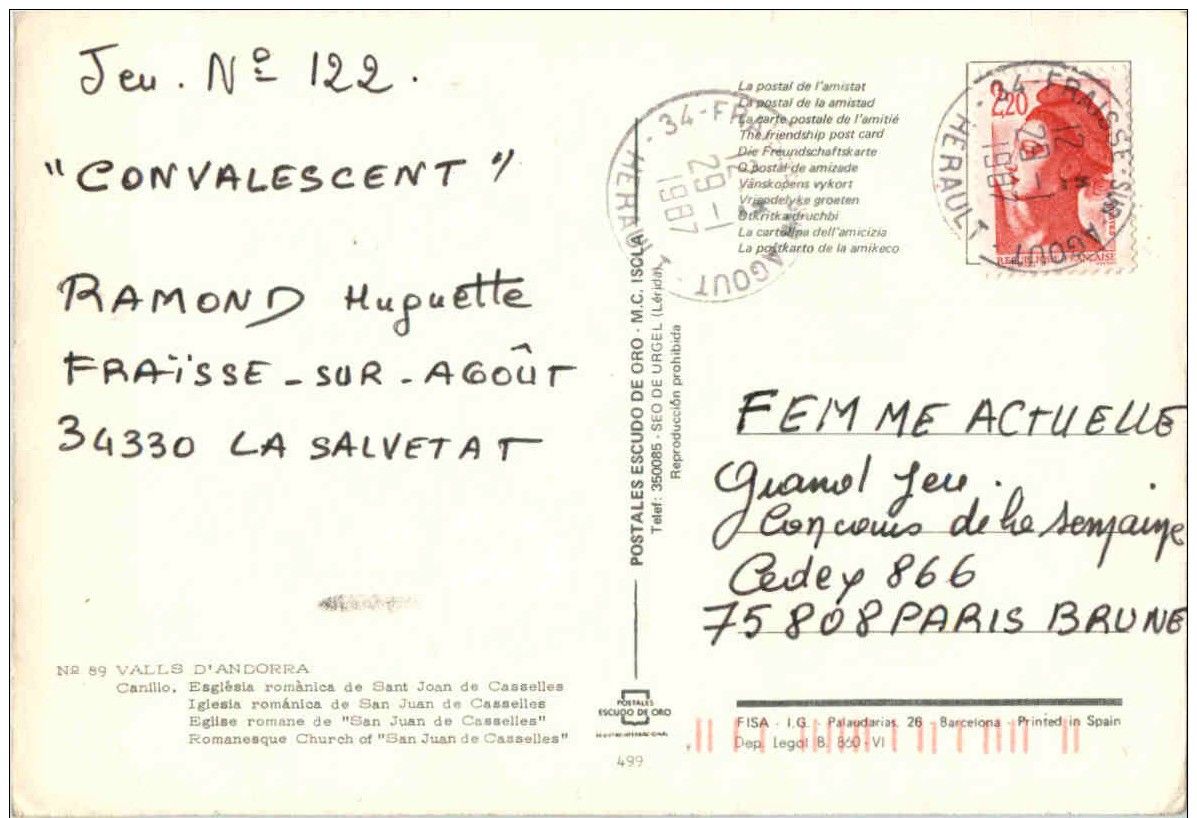 Jeu. Nº 122.
"CONVALESCENT"
RAMOND Huguette
FRAÏSSE-SUR-AGOÛT
34330 LA SALVETAT
Nº 89 VALLS D'ANDORRA
Canillo. Església romànica de Sant Joan de Casselles
Iglesia románica de San Juan de Casselles
Eglise romane de "San Juan de Casselles"
Romanesque Church of "San Juan de Casselles"
POSTALES ESCUDO DE ORO - M.C. ISCLA
Telef: 350085 - SEO DE URGEL (Lérida)
Reproducción prohibida
POSTALES
ESCUDO DE ORO
499
34-FRAISSE-SUR AGOUT
HERAULT
12
29-1
1987
La postal de l'amistat
La postal de la amistad
La carte postale de l'amitié
The friendship post card
Die Freundschaftskarte
O postal de amizade
Vänskopens vykort
Vriendelyke groeten
Otkritka druchbi
La cartolina dell'amicizia
La poŝtkarto de la amikeco
2,20
34-FRAISSE-SUR AGOUT
HERAULT
12
29-1
1987
REPUBLIQUE FRANÇAISE
FEMME ACTUELLE
Grand Jeu.
Concours de la semaine
Cedex 866
75808 PARIS BRUNE
FISA - I.G. Palaudarias, 26 Barcelona - Printed in Spain
Dep. Legal B. 860-VI